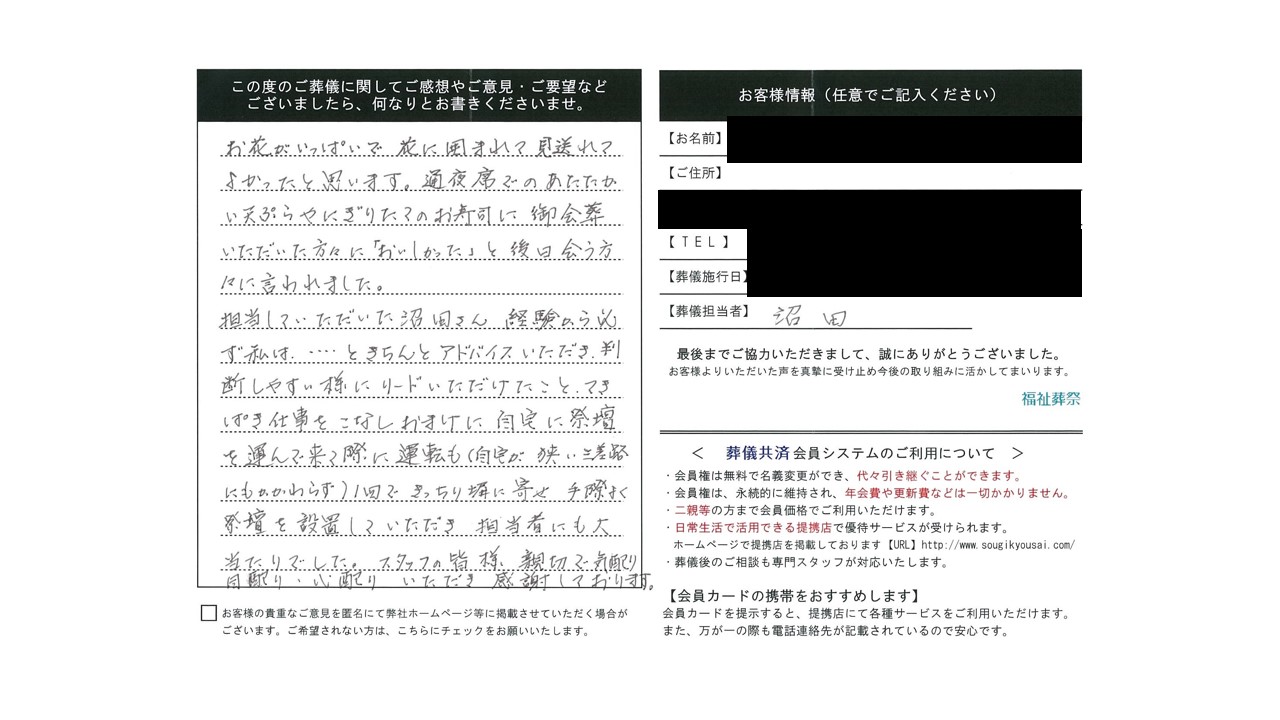 この度のご葬儀に関してご感想やご意見・ご要望など
ございましたら、何なりとお書きくださいませ。
お花がいっぱいで 花に囲まれて見送れて
よかったと思います。通夜席でのあたたか
い天ぷらやにぎりたてのお寿司に御会葬
いただいた方々に「おいしかった」と後日会う方
々に言われました。
担当していただいた沼田さん 経験から必
ず私は、‥‥ときちんとアドバイスいただき、判
断しやすい様にリードいただけたこと、てき
ぱき仕事をこなしおまけに自宅に祭壇
を運んで来る際に運転も(自宅が狭い三差路
にもかかわらず)1回できっちり塀に寄せ手際よく
祭壇を設置していただき 担当者にも大
当たりでした。スタッフの皆様、親切で気配り
目配り・心配り いただき感謝しております。
お客様の貴重なご意見を匿名にて弊社ホームページ等に掲載させていただく場合が
ございます。ご希望されない方は、こちらにチェックをお願いいたします。
お客様情報（任意でご記入ください）
【お名前】
【ご住所】
【ＴＥＬ】
【葬儀施行日】
【葬儀担当者】 沼田
最後までご協力いただきまして、誠にありがとうございました。
お客様よりいただいた声を真摯に受け止め今後の取り組みに活かしてまいります。
福祉葬祭
＜ 葬儀共済会員システムのご利用について ＞
・会員権は無料で名義変更ができ、代々引き継ぐことができます。
・会員権は、永続的に維持され、年会費や更新費などは一切かかりません。
・二親等の方まで会員価格でご利用いただけます。
・日常生活で活用できる提携店で優待サービスが受けられます。
ホームページで提携店を掲載しております【URL】http://www.sougikyousai.com/
・葬儀後のご相談も専門スタッフが対応いたします。
【会員カードの携帯をおすすめします】
会員カードを提示すると、提携店にて各種サービスをご利用いただけます。
また、万が一の際も電話連絡先が記載されているので安心です。